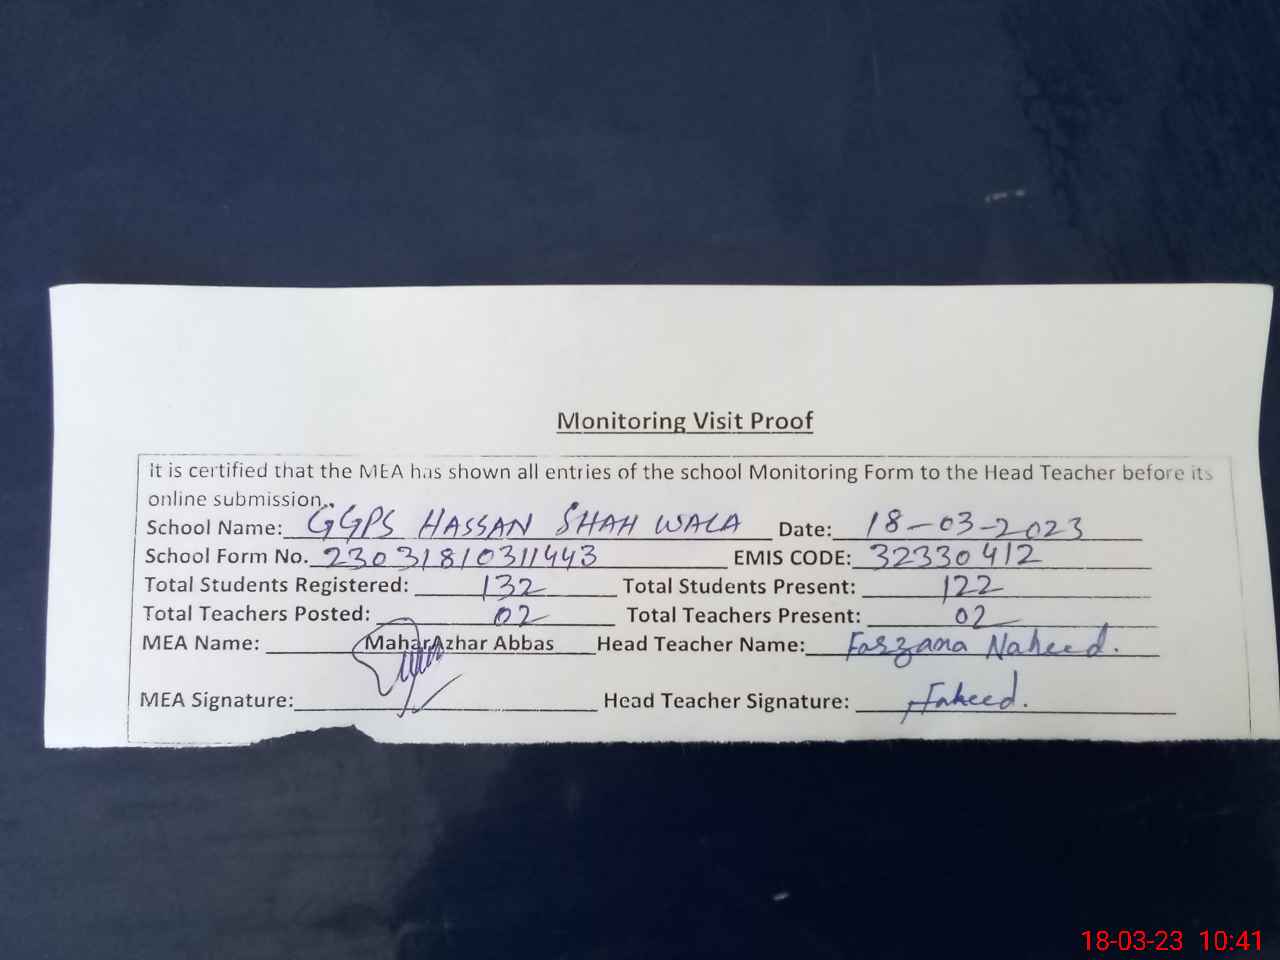 Monitoring Visit Proof
it is certified that the MEA has shown all entries of the school Monitoring Form to the Head Teacher before its
online submission..
School Name: GGPS HASSAN SHAH WALA Date: 18-03-2023
School Form No. 23031810311443 EMIS CODE: 32330412
Total Students Registered: 132 Total Students Present: 122
Total Teachers Posted: 02 Total Teachers Present: 02
MEA Name: Mahar Azhar Abbas Head Teacher Name: Farzana Naheed.
MEA Signature: Head Teacher Signature: Naheed.
18-03-23 10:41